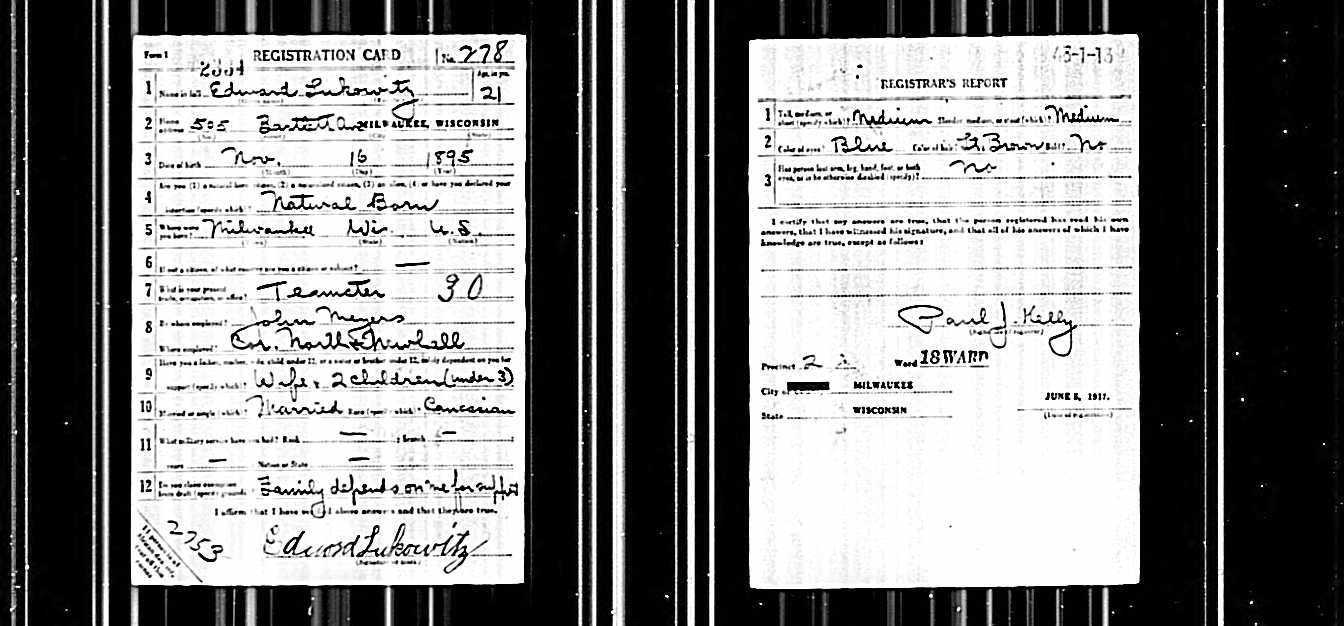 Form 1 REGISTRATION CARD No. 278
2554
1 Name in full Edward Lukowitz Age, in yrs. 21
2 Home address 505 Bartlett Ave MILWAUKEE, WISCONSIN
3 Date of birth Nov. 16 1895
(Month) (Day) (Year)
4 Are you (1) a natural born citizen, (2) a naturalized citizen, (3) an alien, (4) or have you declared your
intention (specify which)? Natural Born
5 Where were you born? Milwaukee Wis. U.S.
(Town) (State) (Nation)
6 If not a citizen, of what country are you a citizen or subject? —
7 What is your present trade, occupation, or office? Teamster 30
8 By whom employed? John Meyers
Where employed? Cor. North & Newhall
9 Have you a father, mother, wife, child under 12, or a sister or brother under 12, solely dependent on you for
support (specify which)? Wife & 2 children (under 3)
10 Married or single (which)? Married Race (specify which)? Caucasian
11 What military service have you had? Rank — ; branch — ;
years — Nation or State —
12 Do you claim exemption from draft (specify grounds)? Family depends on me for support
I affirm that I have verified above answers and that they are true.
2753
Edward Lukowitz
(Signature or mark)
43-1-13
REGISTRAR'S REPORT
1 Tall, medium, or short (specify which)? Medium Slender, medium, or stout (which)? Medium
2 Color of eyes? Blue Color of hair? Lt. Brown Bald? No
3 Has person lost arm, leg, hand, foot, or both eyes, or is he otherwise disabled (specify)? No
I certify that my answers are true, that the person registered has read his own
answers, that I have witnessed his signature, and that all of his answers of which I have
knowledge are true, except as follows:
Paul J. Kelly
(Signature of registrar)
Precinct 2 Ward 18 WARD
City of MILWAUKEE
State WISCONSIN
JUNE 5, 1917.
(Date of registration)